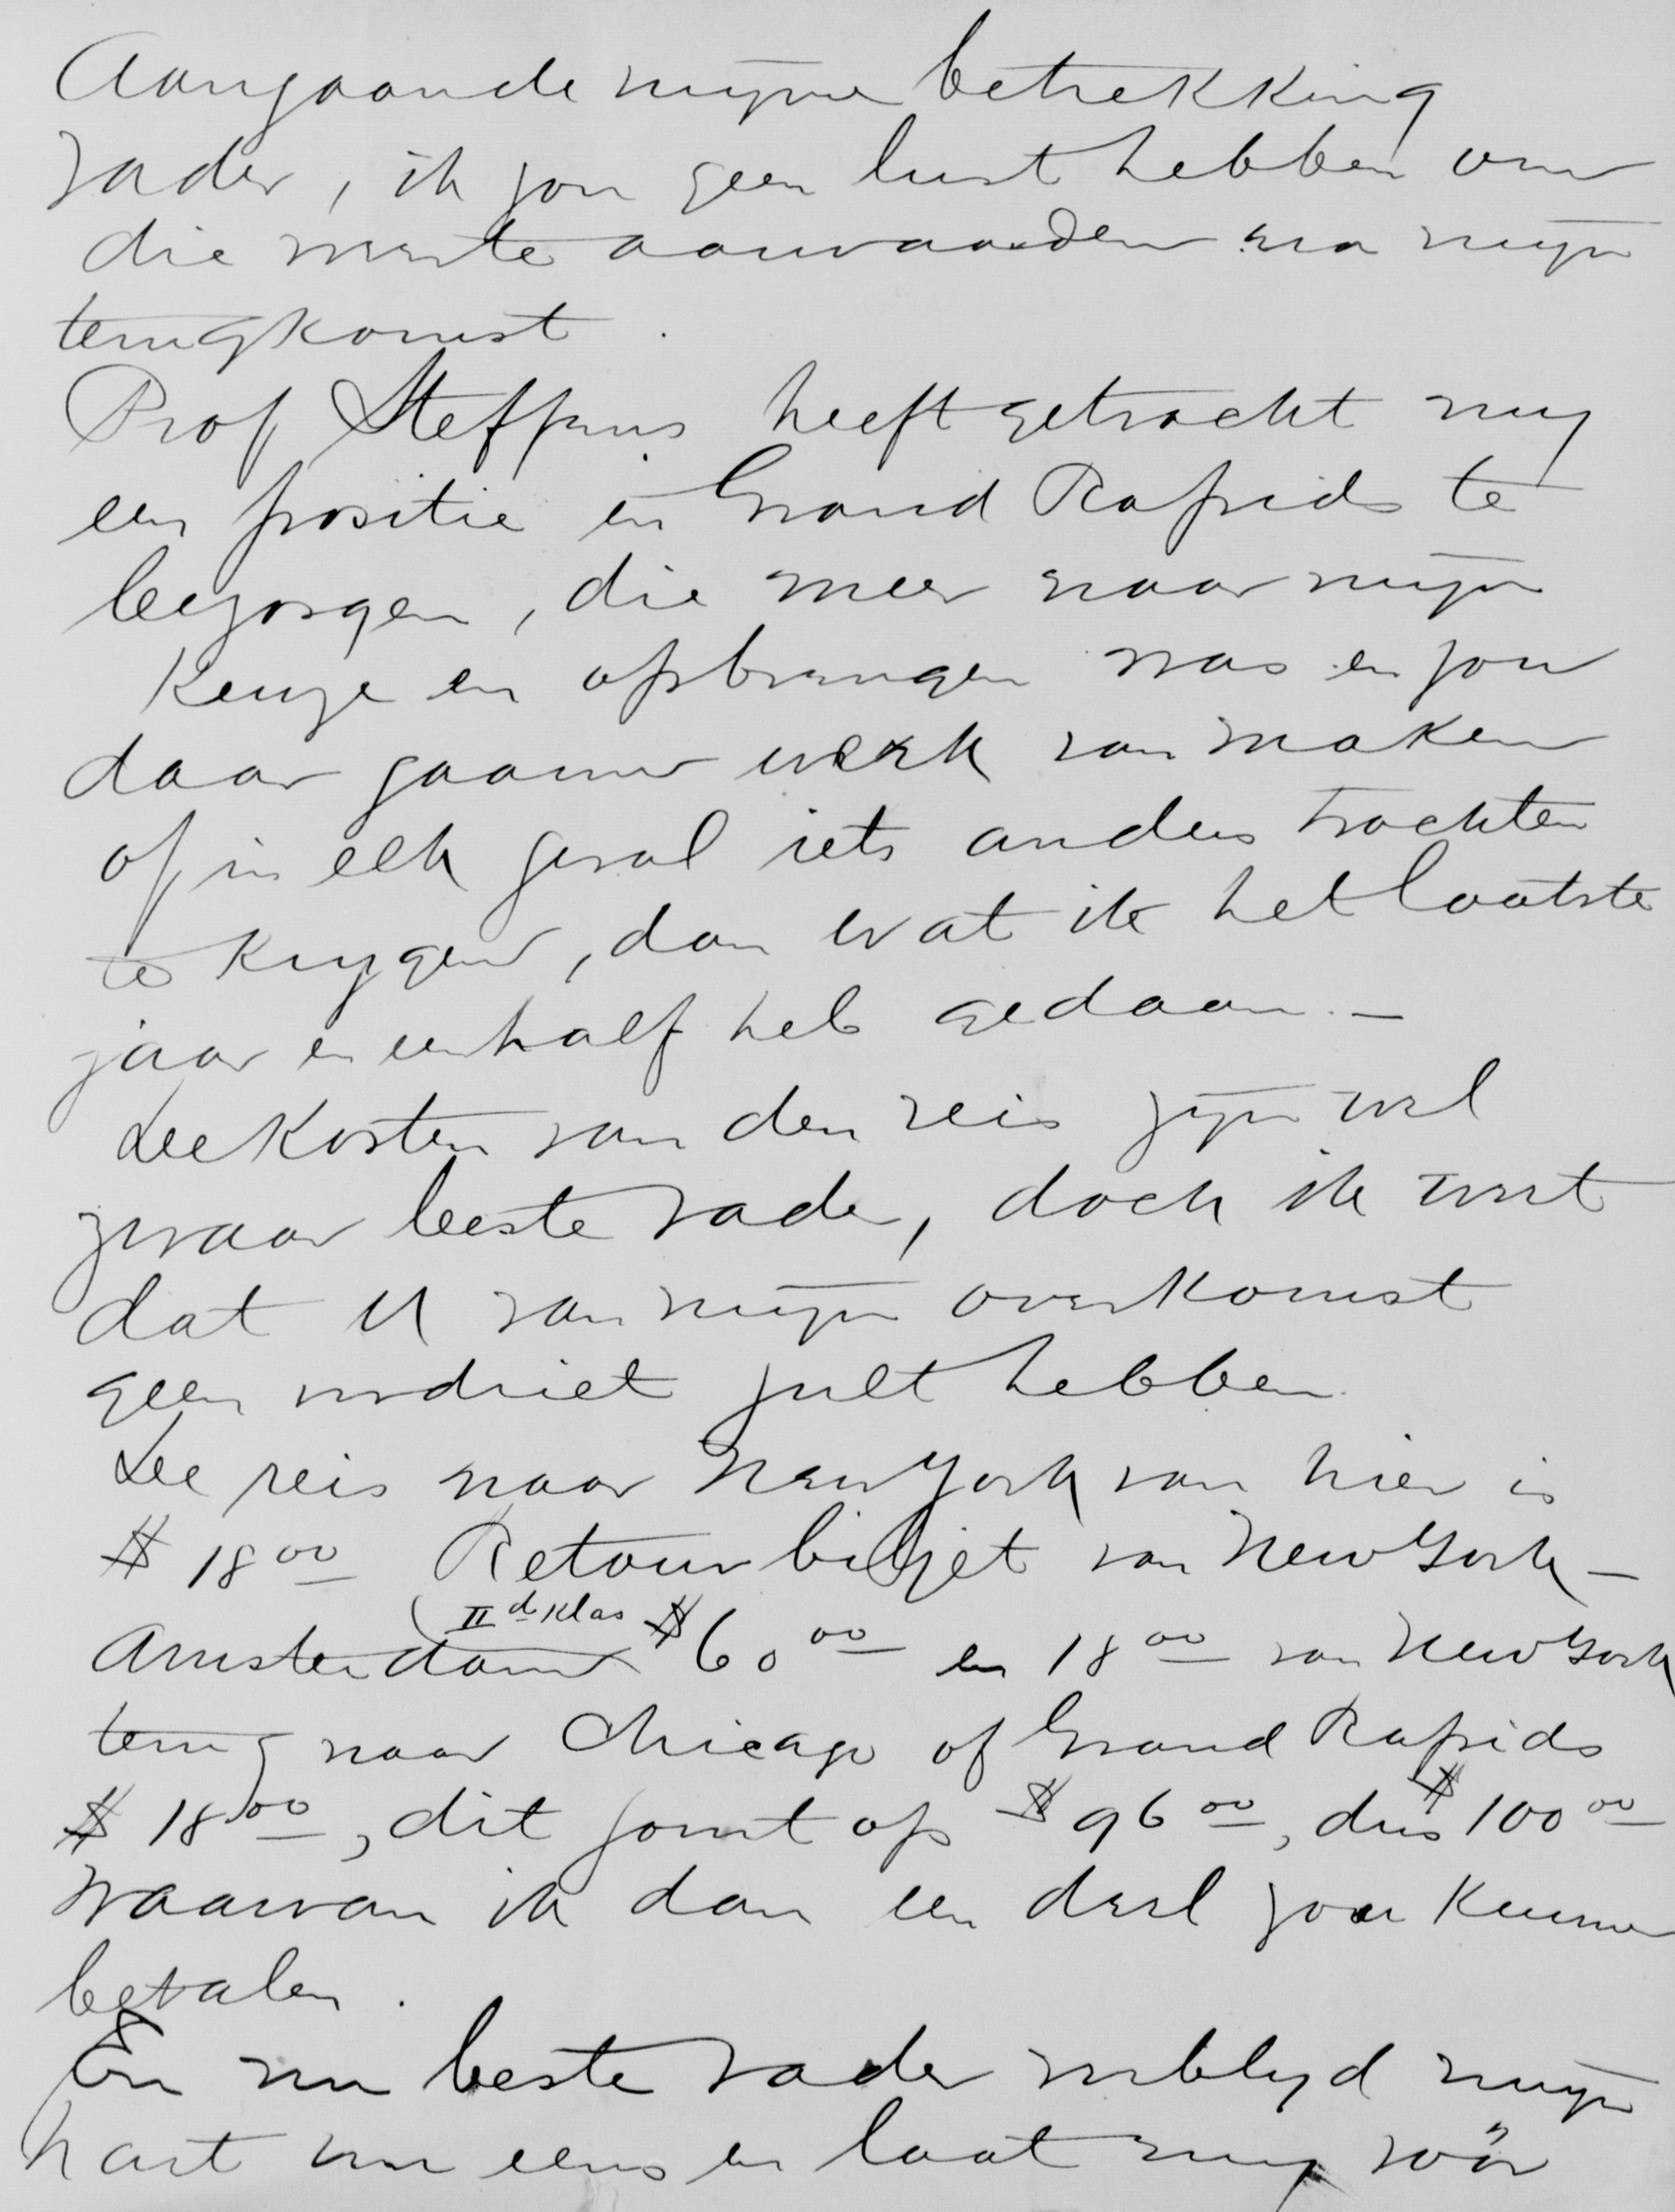 Aangaande mijne betrekking
vader, ik zou geen lust hebben om
die weer te aanvaarden na mijn
terugkomst.
Prof Steffens heeft getracht mij
een positie in Grand Rapids te
bezorgen, die meer naar mijn
keuze en opbrengen was en zou
daar gaarne werk van maken
of in elk geval iets anders trachten
te krijgen, dan wat ik het laatste
jaar en een half heb gedaan. —
De kosten van den reis zijn wel
zwaar beste vader, doch ik weet
dat U van mijn overkomst
geen verdriet zult hebben.
De reis naar New York van hier is
$ 18 00 Retour biljet van New York —
Amsterdam (II de Klas $ 60 00 en 18 00 van New York
terug naar Chicago of Grand Rapids
$ 18 00, dit komt op $ 96 00, dus $ 100 00
waarvan ik dan een deel zou kunnen
betalen.
En nu beste vader verblijd mijn
hart nu eens en laat mij vóór